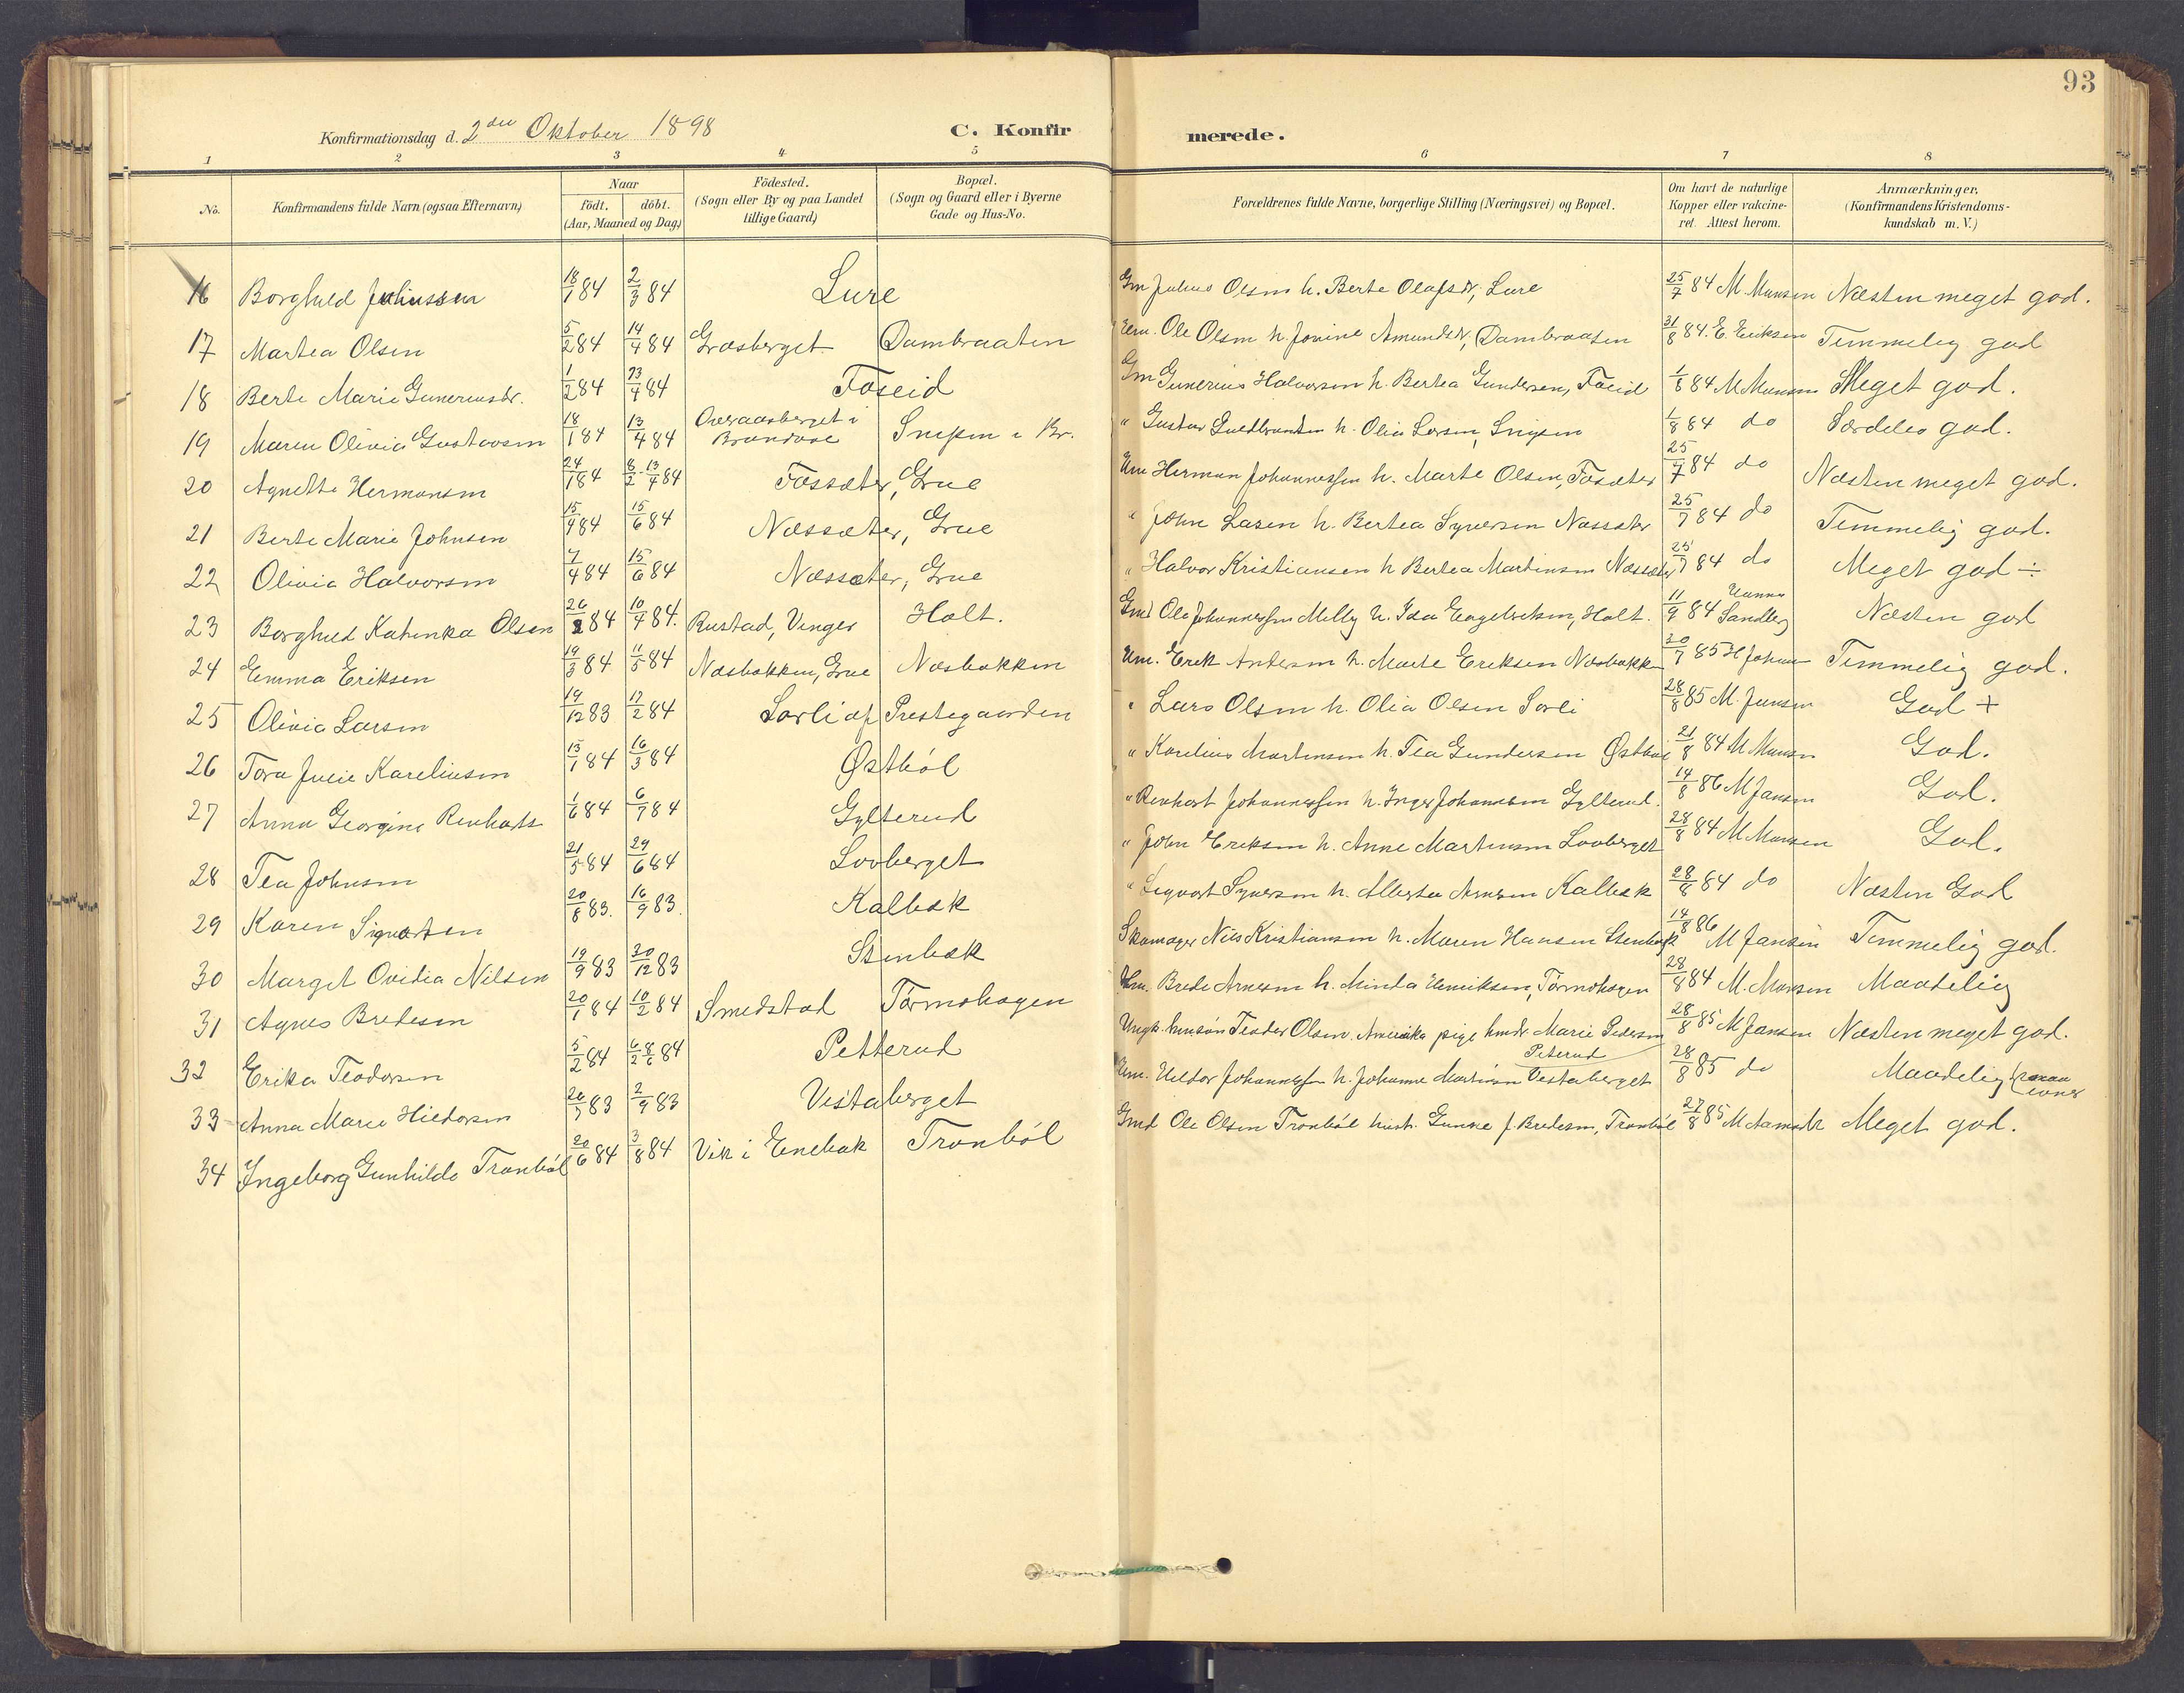 93
Konfirmationsdag d. 2den Oktober 1898 C. Konfirmerede.
1 2 3 4 5 6 7 8
No. Konfirmandens fulde Navn (ogsaa Efternavn) Naar födt. döbt. (Aar, Maaned og Dag) Födested. (Sogn eller By og paa Landet tillige Gaard) Bopæl. (Sogn og Gaard eller i Byerne Gade og Hus-No. Forældrenes fulde Navne, borgerlige Stilling (Næringsvei) og Bopæl. Om havt de naturlige Kopper eller vakcineret. Attest herom. Anmærkninger. (Konfirmandens Kristendomskundskab m. V.)
16 Borghild Juliussen 18/1 84 2/3 84 Lure Gm Julius Olsen h. Berte Olafsdr, Lure 25/7 84 M. Munsen Næsten meget god.
17 Martea Olsen 5/2 84 14/4 84 Græsberget Dambraaten Em. Ole Olsen h. Jovine Amundsdr, Dambraaten 31/8 84. E. Eriksen Temmelig god
18 Berte Marie Guneriusdr. 1/2 84 23/4 84 Foseid Gm Gunerius Halvorsen h. Bertea Gundersen, Foseid 1/8 84 M Munsen Meget god.
19 Maren Olivia Gustavsen 18/1 84 13/4 84 Overaasberget i Brandval Snipen i Br. " Gustav Guldbrandsen h. Olia Larsen, Snipen 1/8 84 do Særdeles god.
20 Agnette Hermansen 24/1 84 8/2 - 13/4 84 Fossæter, Grue Em Herman Johannessen h. Marte Olsen, Fossæter 25/7 84 do Næsten meget god.
21 Berte Marie Johnsen 15/4 84 15/6 84 Næssæter, Grue " John Lasen h. Bertea Syversen Næssæter 25/7 84 do Temmelig god.
22 Olivia Halvorsen 7/4 84 15/6 84 Næssæter, Grue " Halvor Kristiansen h Bertea Martinsen Næssæter 25/7 84 do Meget god ÷
23 Borghild Katinka Olsen 26/2 84 10/4 84. Rustad, Vinger Holt. Gmd Ole Johannessen Melby h. Ida Engebretsen, Holt. 11/9 84 Hanna Sandberg Næsten god
24 Emma Eriksen 19/3 84 11/5 84 Næsbakken, Grue Næsbakken Em. Erik Andersen h. Marte Eriksen Næsbakken 30/7 85 H Johan Temmelig god.
25 Olivia Larsen 19/12 83 17/2 84 Sorli af Prestegaarden " Lars Olsen h. Olia Olsen Sorli 28/8 85 M. Jansen God +
26 Tora Julie Kareliusen 15/1 84 16/3 84 Østböl " Karelius Martinsen h. Tea Gundersen Østböl 21/8 84 M Munsen God.
27 Anna Georgine Renharts 1/6 84 6/7 84 Gylterud " Renhart Johannessen h. Inger Johannesen Gylterud. 14/8 86 M Jansen God.
28 Tea Johnsen 21/5 84 29/6 84 Lovberget " John Eriksen h. Anne Martinsen Lovberget 28/8 84 M Munsen God.
29 Karen Sigvartsen 20/8 83. 16/9 83. Kalbæk " Sigvart Syversen h. Alberta Arnesen Kalbæk 28/8 84 do Næsten God
30 Marget Ovidia Nilsen 19/9 83 30/12 83 Stenbæk Skomager Nils Kristiansen h. Maren Hansen Stenbæk 14/8 86 M Jansen Temmelig god.
31 Agnes Bredesen 20/1 84 10/2 84 Smedstad Tormohagen Em. Brede Arnesen h. Minda Henriksen, Tormohagen 28/8 84 M. Munsen Maadelig
32 Erika Teodorsen 5/2 84 6/2 8/6 84 Petterud Ungk. hmsön Teodor Olsen Amerika pige hmdr. Marie Pedersen Peterud 28/8 85 M Jansen Næsten meget god.
33 Anna Marie Hildorsen 26/7 83 2/9 83 Vestaberget Em. Heldor Johannessen h. Johanne Martinsen Vestaberget 28/8 85 do Maadelig
34 Ingeborg Gunhilda Tronböl 20/6 84 3/8 84 Vik i Enebak Tronböl Gmd Ole Olsen Tronböl hust. Gunne J. Bredesen, Tronböl 27/8 85 Meget god.